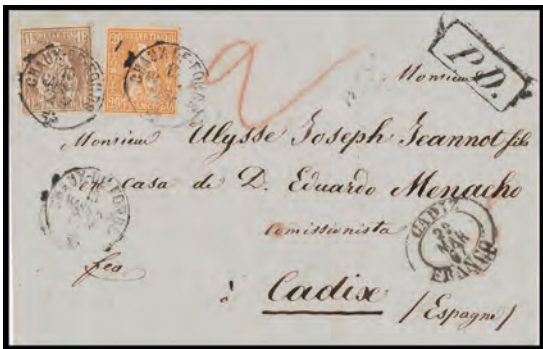 HELVETIA
FRANCO
CHAUX-DE-FONDS
CHAUX-DE-FONDS
2
P.D.
Monsieur
Monsieur Ulysse Joseph Jeannot fils
en casa de D. Eduardo Menacho
Comissionista
CHAUX-DE-FONDS
CADIZ
MAR
FRANCO
fco
à Cadix
/Espagne/